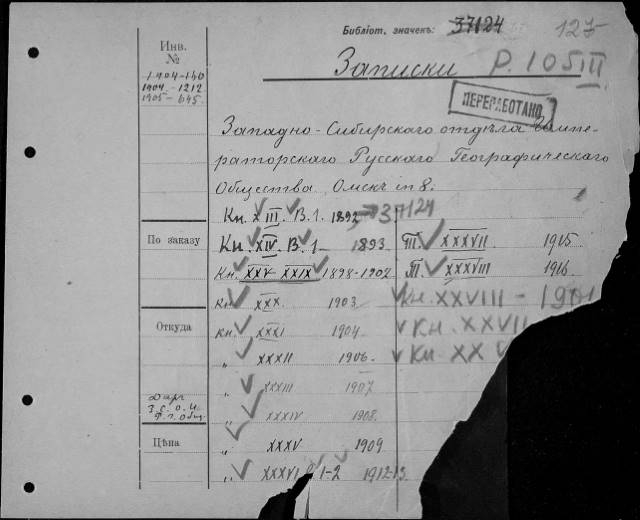 Библіот. значекъ: 37124 127
Инв. №
1904-140
1904-1212
1905-645
Записки Р. 105 III
ПЕРЕРАБОТАНО
Западно-Сибирскаго отдѣла Импе-
раторскаго Русскаго Географическаго
Общества, Омскъ in 8.
Кн. XIII. В. 1. 1892 37124
По заказу
Кн. XIV. В. 1 1893
Т. XXXVII 1915
Кн. XXV-XXIX 1898-1902
Т. XXXVIII 1916
Кн. XXX 1903
Кн. XXVIII - 1901
Откуда
Кн. XXXI 1904
Кн. XXVII
„ XXXII 1906
Кн. XX
„ XXXIII 1907
Даръ
З. С. О. И.
Р. Г. Общ.
„ XXXIV 1908
Цѣна
„ XXXV 1909
„ XXXVI 1-2 1912-13